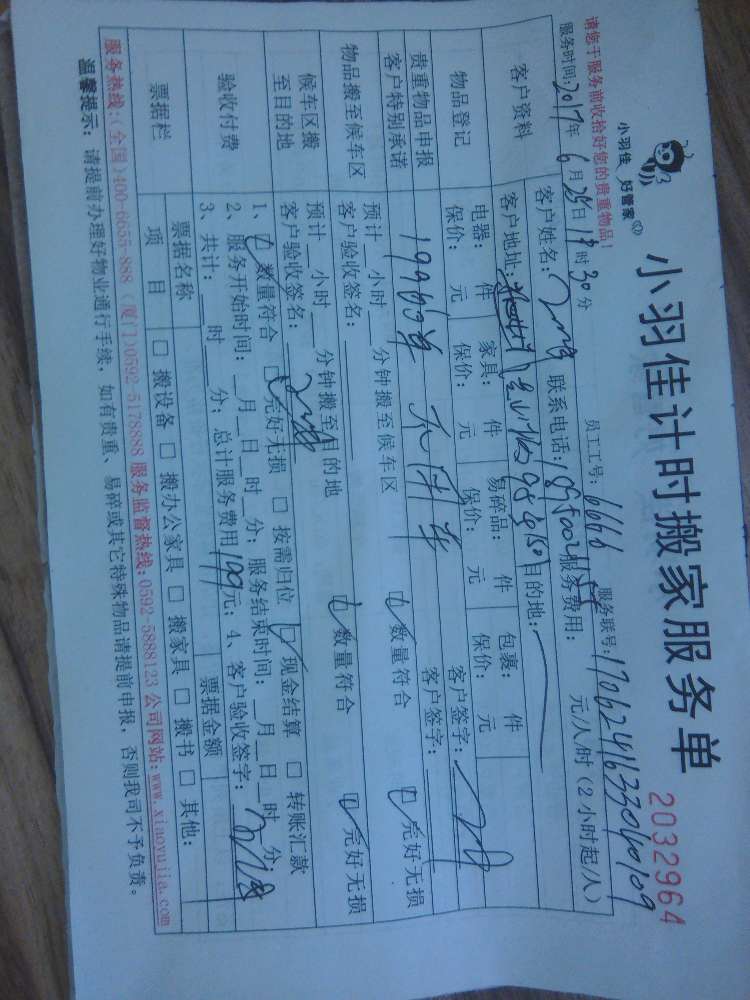 小羽佳计时搬家服务单
2032964
小羽佳 好管家
请您于服务前收拾好您的贵重物品!
员工工号: 6666 服务联号: 1706241633040109
服务时间: 2017年 6月 25日 13时 30分
客户资料
客户姓名: 联系电话: 服务费用: 元/人/时(2小时起/人)
客户地址: 目的地:
物品登记
电器: 件 家具: 件 易碎品: 件 包裹: 件
保价: 元 保价: 元 保价: 元 保价: 元
客户签字:
贵重物品申报
客户特别承诺
客户签字:
物品搬至候车区
预计__小时__分钟搬至候车区 ☑数量符合 ☑完好无损
客户验收签名:
候车区搬至目的地
预计__小时__分钟搬至目的地 ☑数量符合 ☑完好无损
客户验收签名:
验收付费
1、☑数量符合 ☑完好无损 □按需归位 ☑现金结算 □转账汇款
2、服务开始时间:__月__日__时__分; 服务结束时间:__月__日__时__分
3、共计:__时__分; 总计服务费用199元; 4、客户验收签字:
票据栏
票据名称 票据金额
项目 □搬设备 □搬办公家具 □搬家具 □搬书 □其他:
服务热线:(全国)400-6655-888 (厦门)0592-5178888 服务监督热线:0592-5888123 公司网站:www.xiaoyujia.com
温馨提示: 请提前办理好物业通行手续, 如有贵重、易碎或其它特殊物品请提前申报, 否则我司不予负责。